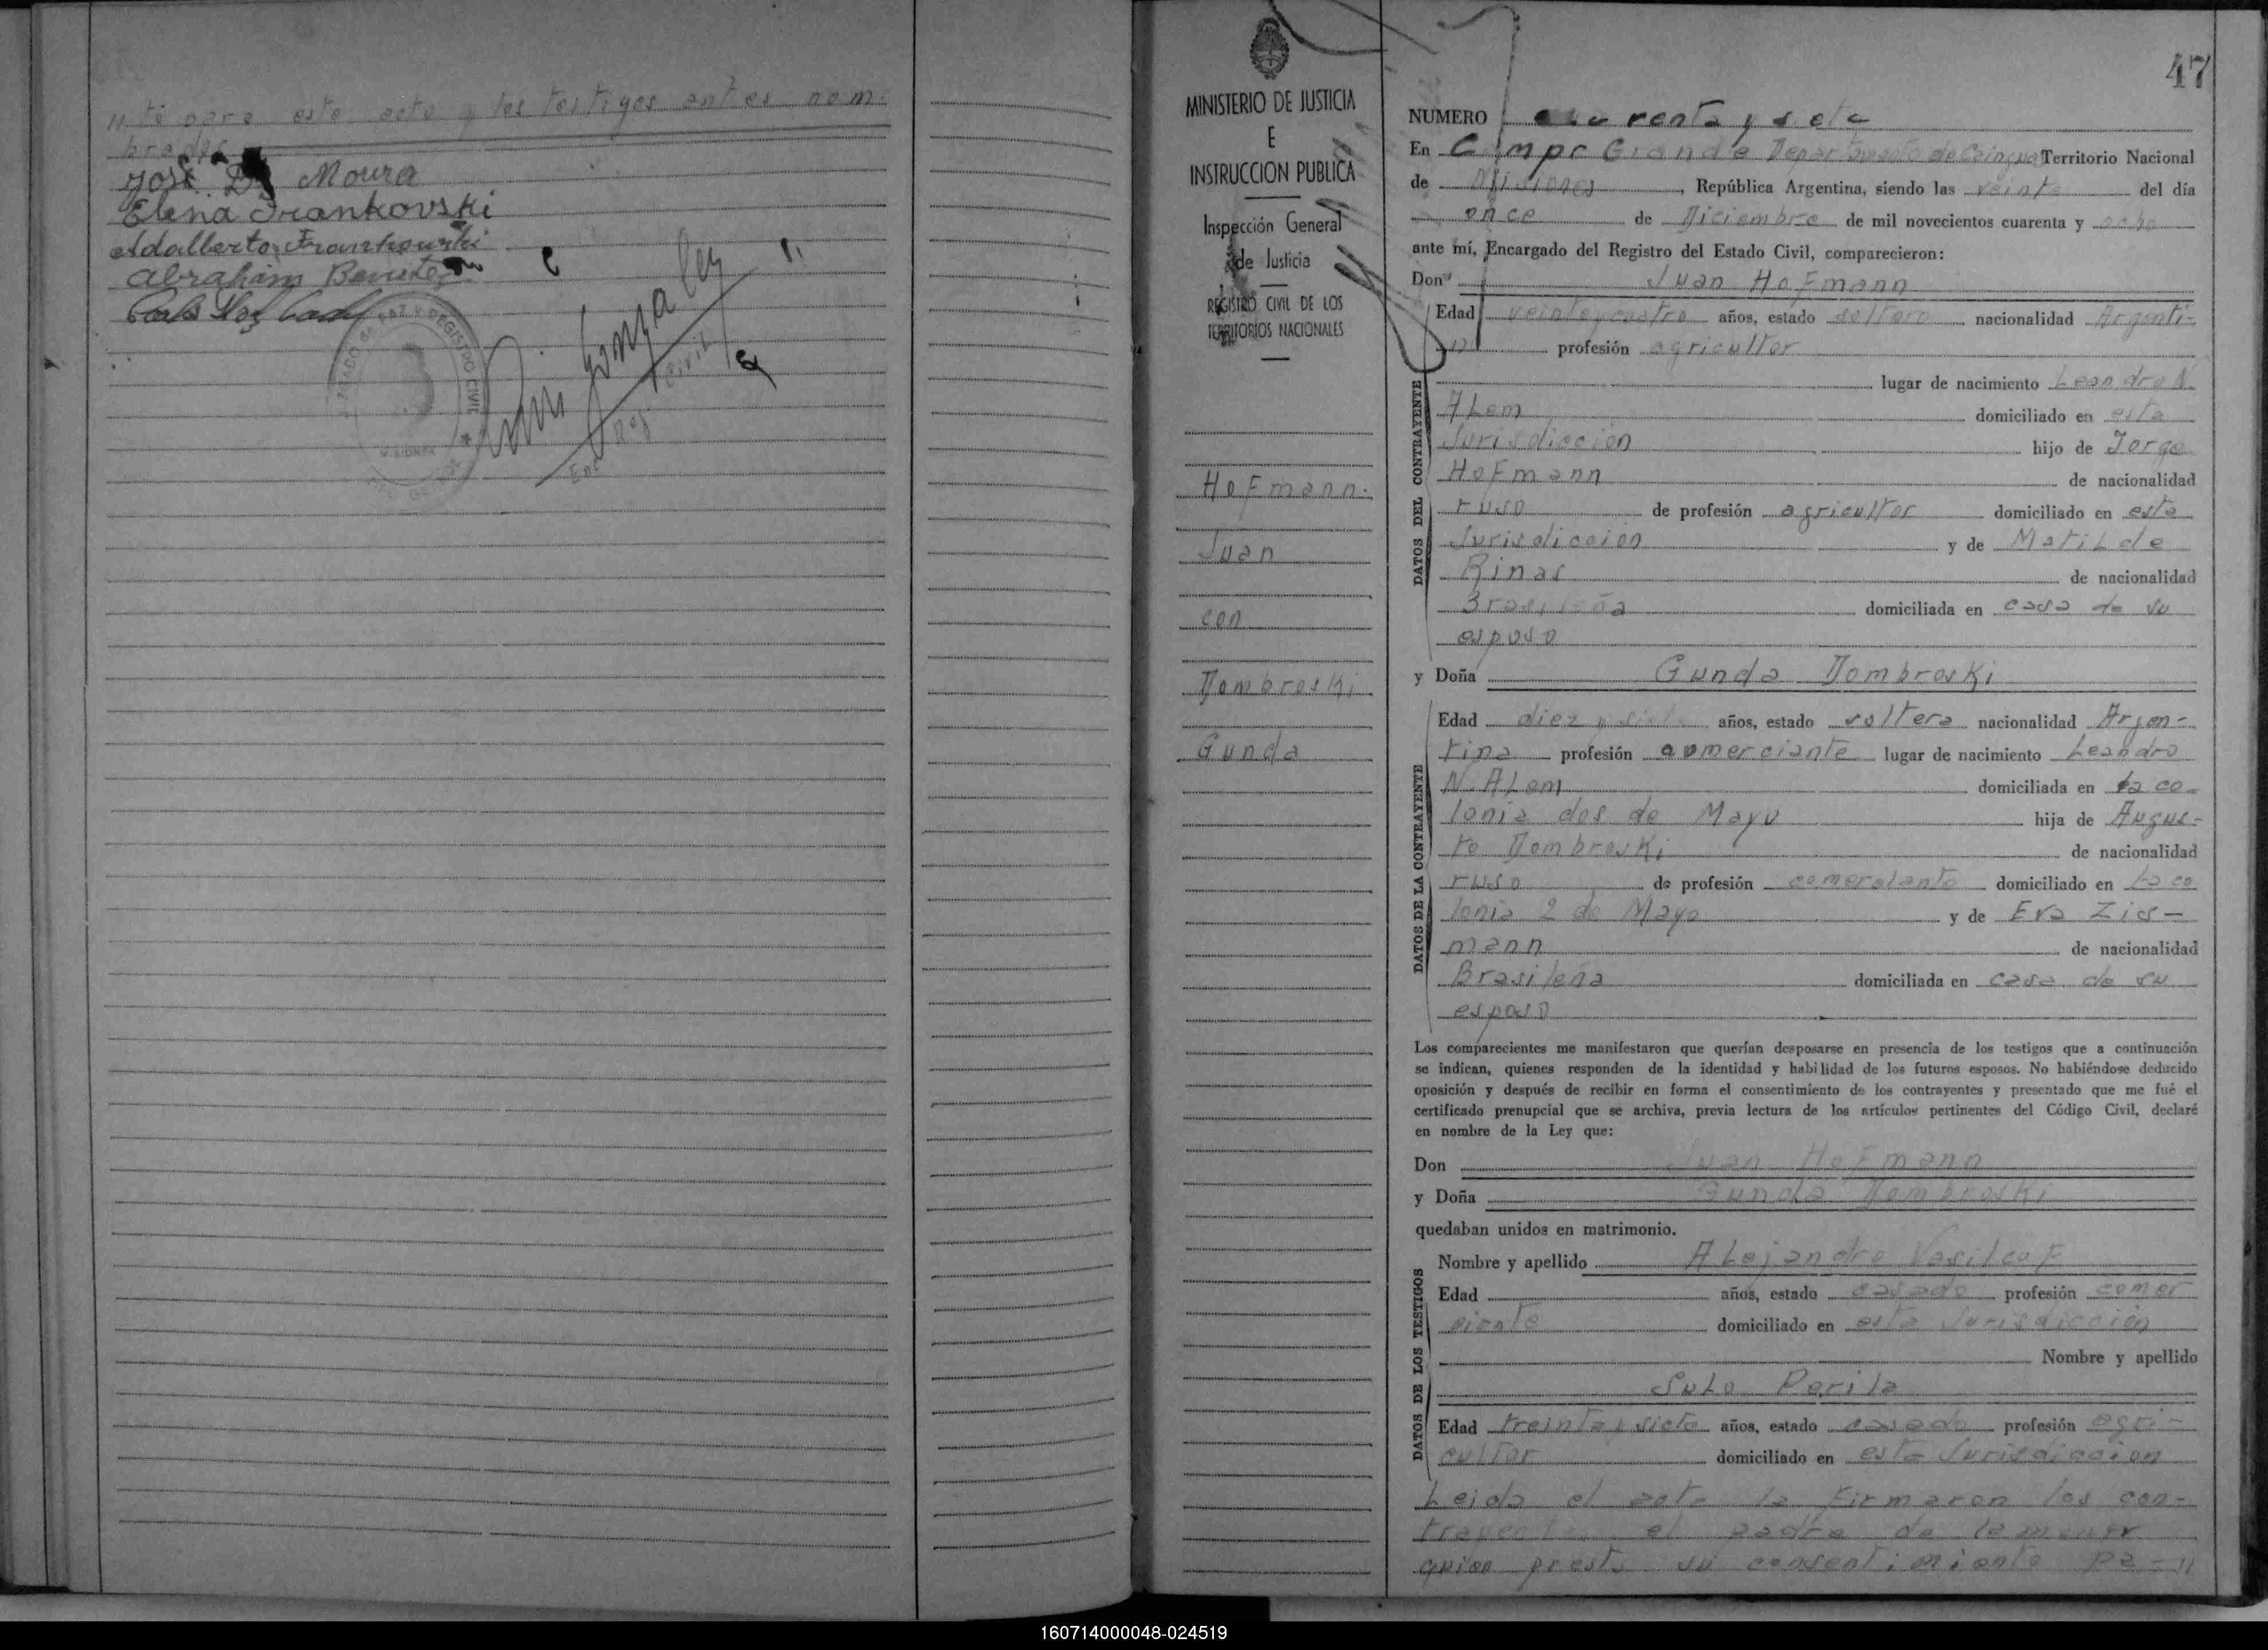 " ti para este acto y los testigos antes nom-
brados
José D. Moura
Elena Frankovski
Adalberto Frankowski
Abraham
JUZGADO de PAZ y REGISTRO CIVIL
MISIONES
Enc Reg. Civil
47
MINISTERIO DE JUSTICIA
E
INSTRUCCION PUBLICA
Inspección General
de Justicia
REGISTRO CIVIL DE LOS
TERRITORIOS NACIONALES
Hofmann.
Juan
con
Dombroski
Gunda
NUMERO cuarenta y siete
En Campo Grande Departamento de Cainguas Territorio Nacional
de Misiones, República Argentina, siendo las veinte del día
once de Diciembre de mil novecientos cuarenta y ocho
ante mí, Encargado del Registro del Estado Civil, comparecieron:
Don Juan Hofmann
DATOS DEL CONTRAYENTE
Edad veinte y cuatro años, estado soltero nacionalidad Argenti-
no profesión agricultor
lugar de nacimiento Leandro N.
Alem domiciliado en esta
Jurisdicción hijo de Jorge
Hofmann de nacionalidad
ruso de profesión agricultor domiciliado en esta
Jurisdicción y de Matilde
Rinas de nacionalidad
Brasileña domiciliada en casa de su
esposo
y Doña Gunda Dombroski
DATOS DE LA CONTRAYENTE
Edad diez y siete años, estado soltera nacionalidad Argen-
tina profesión comerciante lugar de nacimiento Leandro
N. Alem domiciliada en la co-
lonia dos de Mayo hija de Augus-
to Dombroski de nacionalidad
ruso de profesión comerciante domiciliado en la co
lonia 2 de Mayo y de Eva Zis-
mann de nacionalidad
Brasileña domiciliada en casa de su
esposo
Los comparecientes me manifestaron que querían desposarse en presencia de los testigos que a continuación
se indican, quienes responden de la identidad y habilidad de los futuros esposos. No habiéndose deducido
oposición y después de recibir en forma el consentimiento de los contrayentes y presentado que me fué el
certificado prenupcial que se archiva, previa lectura de los artículos pertinentes del Código Civil, declaré
en nombre de la Ley que:
Don Juan Hofmann
y Doña Gunda Dombroski
quedaban unidos en matrimonio.
DATOS DE LOS TESTIGOS
Nombre y apellido Alejandro Vasilcof
Edad años, estado casado profesión comer
ciante domiciliado en esta Jurisdicción
Nombre y apellido
Sulo Perila
Edad treinta y siete años, estado casado profesión agri-
cultor domiciliado en esta Jurisdiccion
Leida el acta la firmaron los con-
trayentes el padre de la menor
quien presta su consentimiento pa-"
160714000048-024519